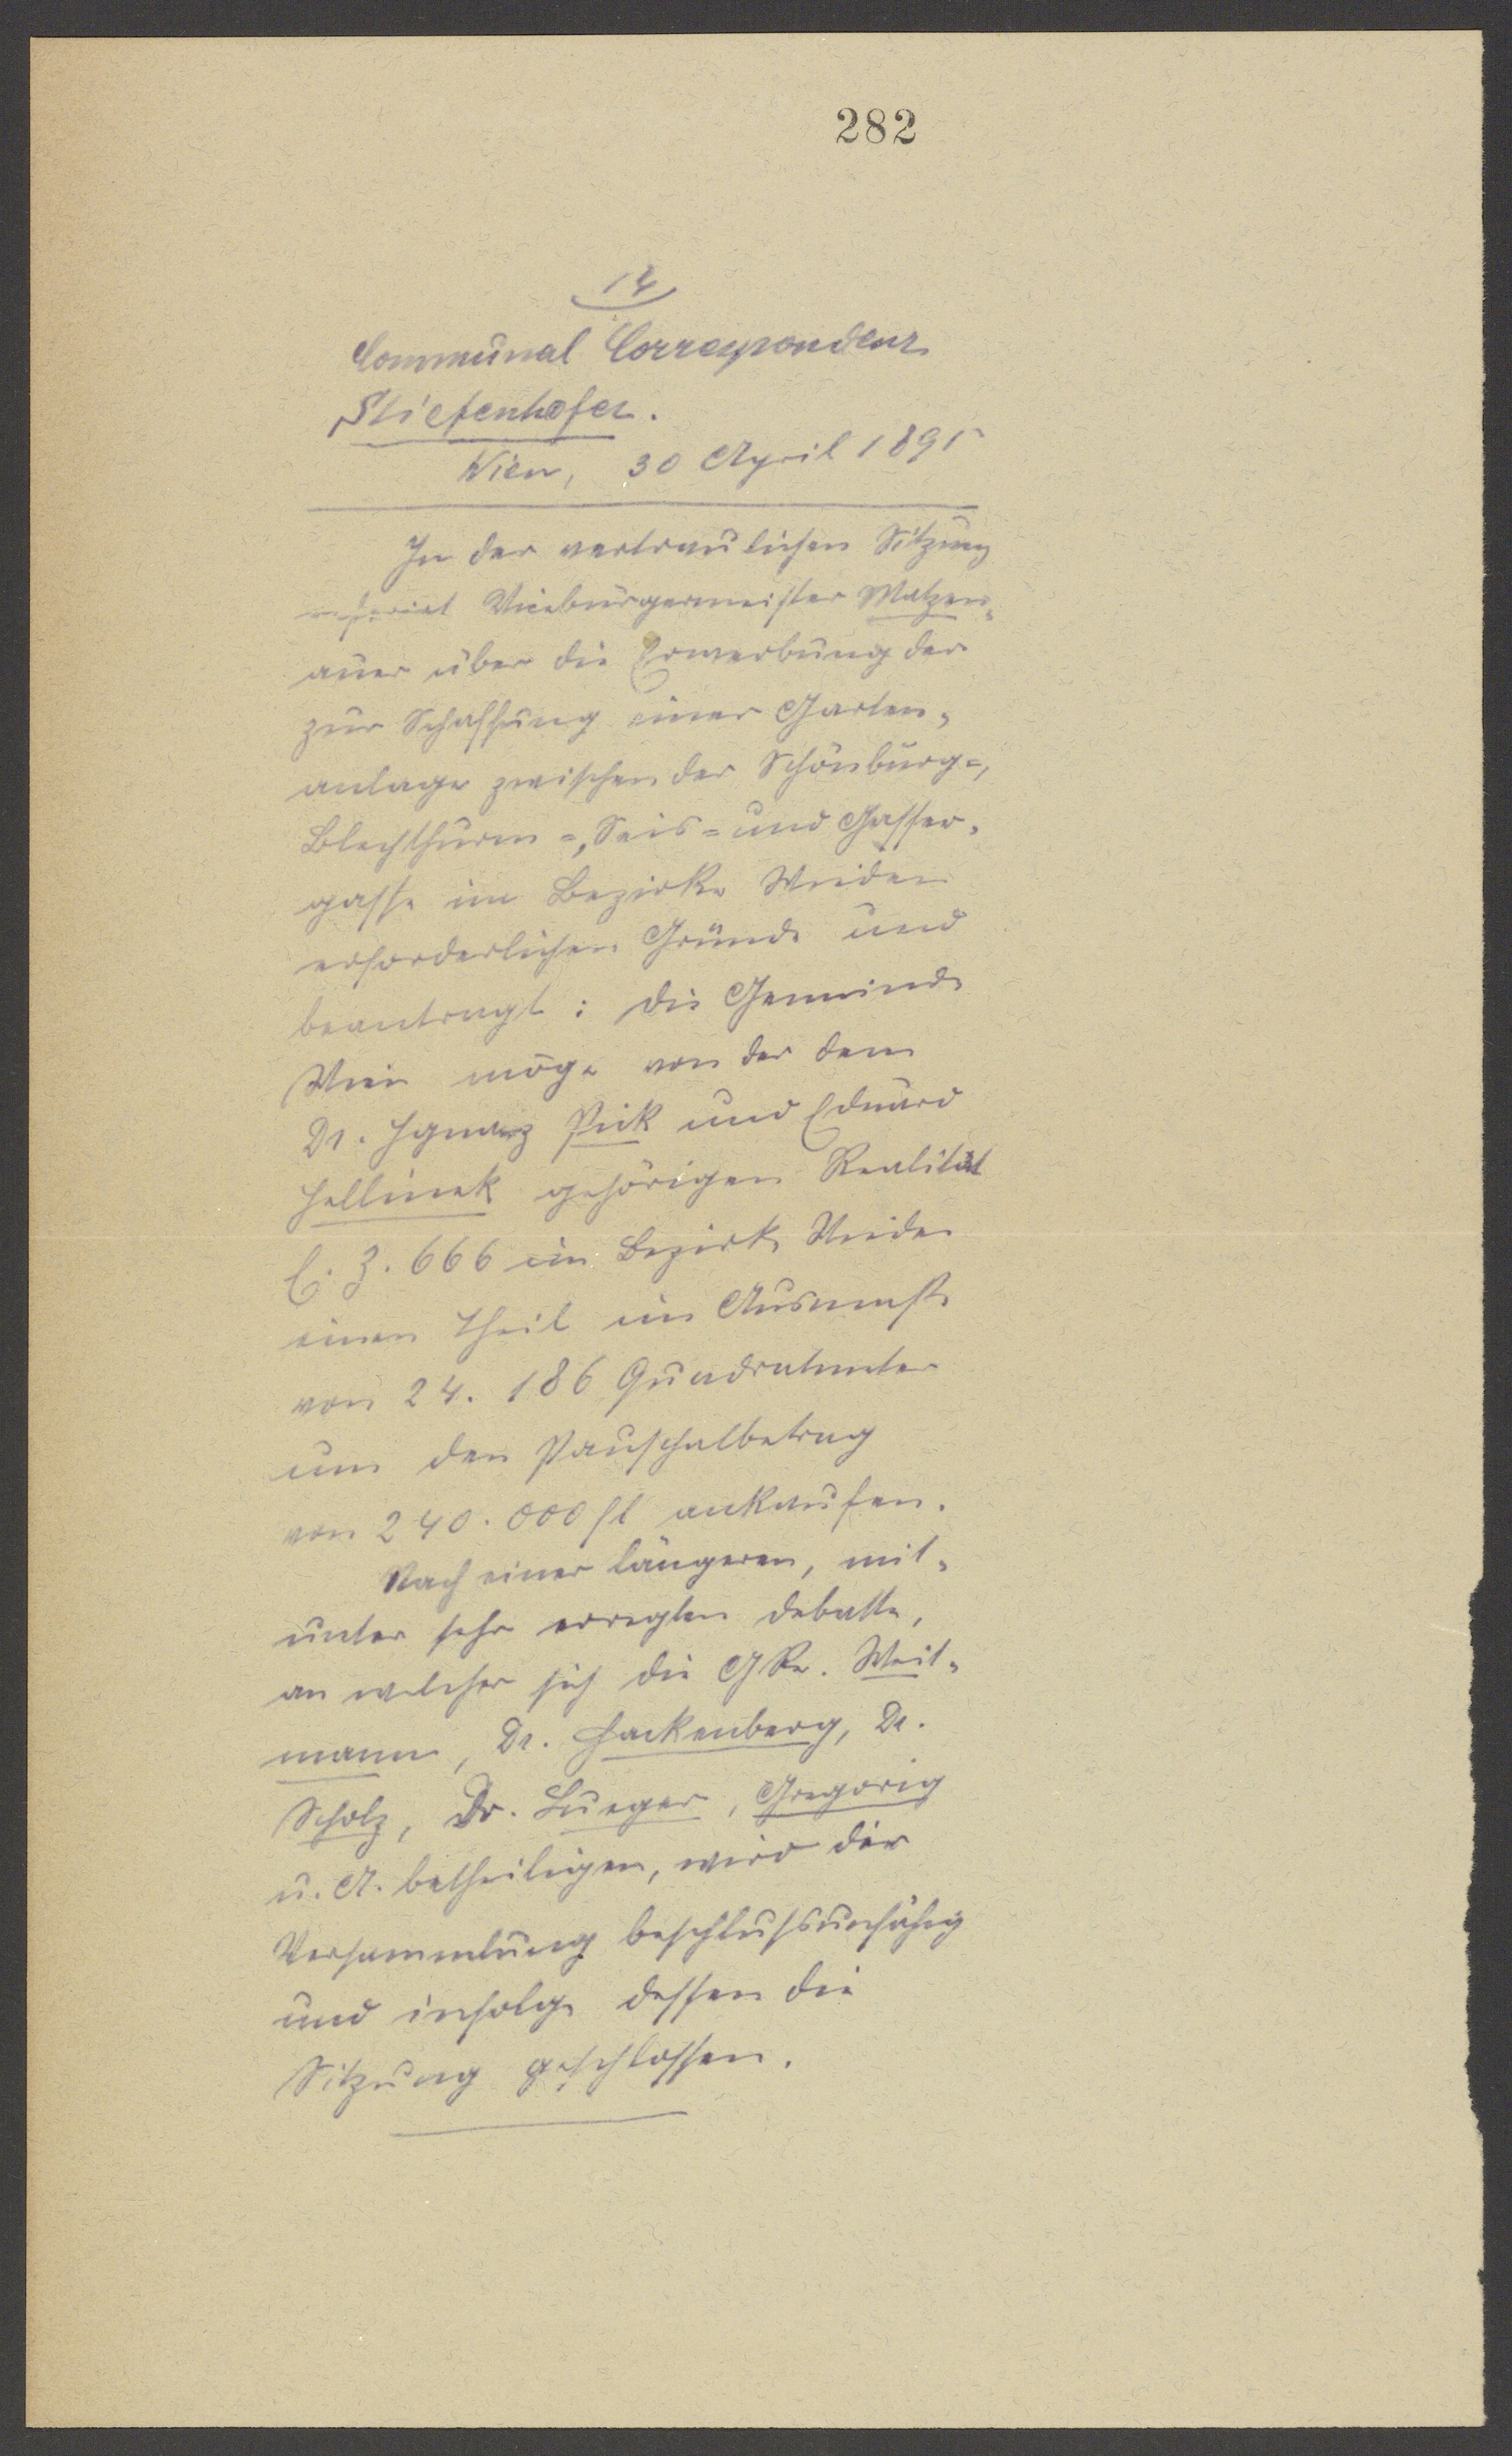 282
14
Communal Correspondenz
Stiefenhofer.
Wien, 30 April 1895
In der vertraulichen Sitzung
referirt Vicebürgermeister Matzen-
auer über die Erwerbung der
zur Schaffung einer Garten-
anlage zwischen der Schönburg-,
Blechthurm-, Seis- und Gasser-
gasse im Bezirke Wieden
erforderlichen Gründe und
beantragt: Die Gemeinde
Wien möge von der dem
Dr. Ignaz Pick und Eduard
Jellinek gehörigen Realität
C. Z. 666 im Bezirk Wieden
einen Theil im Ausmaße
von 24.186 Quadratmeter
um den Pauschalbetrag
von 240.000 fl ankaufen.
Nach einer längeren, mit-
unter sehr erregten Debatte,
an welcher sich die GRe. Weit-
mann, Dr. Hackenberg, Dr.
Scholz, Dr. Lueger, Gregorig
u. A. betheiligen, wird die
Versammlung beschlußunfähig
und infolge dessen die
Sitzung geschlossen.